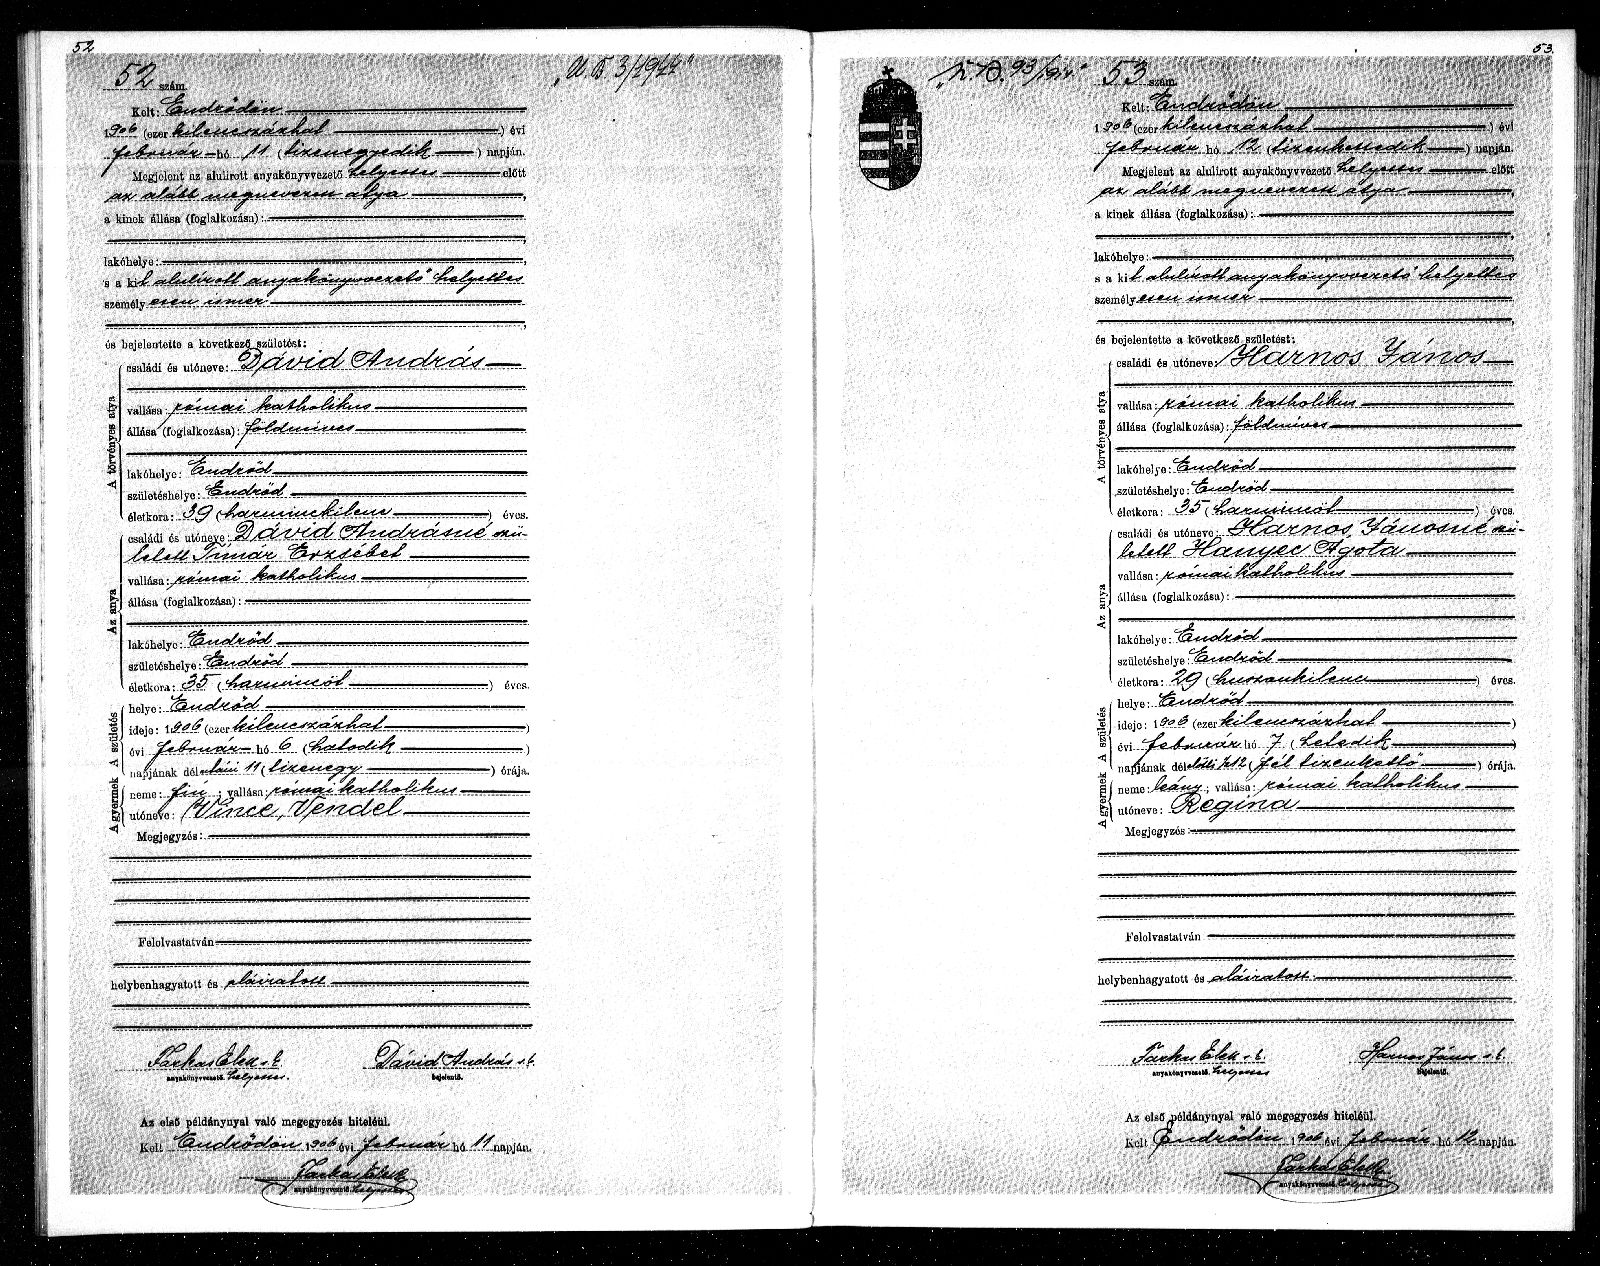 52
52 szám.
Kelt: Endrődön
1906 (ezer kilencszázhat) évi
február hó 11 (tizenegyedik) napján.
Megjelent az alulirott anyakönyvvezető helyettes előtt
az alább megnevezett atya,
a kinek állása (foglalkozása):
lakóhelye:
s a kit alulírott anyakönyvvezető helyettes
személyesen ismer
és bejelentette a következő születést:
A törvényes atya
családi és utóneve: Dávid András
vallása: római katholikus
állása (foglalkozása): földmíves
lakóhelye: Endrőd
születéshelye: Endrőd
életkora: 39 (harminckilenc) éves.
Az anya
családi és utóneve: Dávid Andrásné szü-
letett Tímár Erzsébet
vallása: római katholikus
állása (foglalkozása):
lakóhelye: Endrőd
születéshelye: Endrőd
életkora: 35 (harmincöt) éves.
A születés
helye: Endrőd
ideje: 1906 (ezer kilencszázhat)
évi február hó 6 (hatodik)
napjának délutáni 11 (tizenegy) órája.
A gyermek
neme: fiú; vallása: római katholikus
utóneve: Vince, Vendel
Megjegyzés:
Felolvastatván
helybenhagyatott és aláiratott
Farkas Elek s. k. Dávid András s. k.
anyakönyvvezető. helyettes. bejelentő.
Az első példánynyal való megegyezés hiteléül.
Kelt Endrődön 1906 évi február hó 11 napján.
Farkas Elek
anyakönyvvezető. helyettes
53
53 szám.
Kelt: Endrődön
1906 (ezer kilencszázhat) évi
február hó 12 (tizenkettedik) napján.
Megjelent az alulirott anyakönyvvezető helyettes előtt
az alább megnevezett atya,
a kinek állása (foglalkozása):
lakóhelye:
s a kit alulírott anyakönyvvezető helyettes
személyesen ismer
és bejelentette a következő születést:
A törvényes atya
családi és utóneve: Harnos János
vallása: római katholikus
állása (foglalkozása): földmíves
lakóhelye: Endrőd
születéshelye: Endrőd
életkora: 35 (harmincöt) éves.
Az anya
családi és utóneve: Harnos Jánosné szü-
letett Hanyec Ágota
vallása: római katholikus
állása (foglalkozása):
lakóhelye: Endrőd
születéshelye: Endrőd
életkora: 29 (huszonkilenc) éves.
A születés
helye: Endrőd
ideje: 1906 (ezer kilencszázhat)
évi február hó 7 (hetedik)
napjának délelőtti ½12 (fél tizenkettő) órája.
A gyermek
neme: leány; vallása: római katholikus
utóneve: Regina
Megjegyzés:
Felolvastatván
helybenhagyatott és aláiratott
Farkas Elek s. k. Harnos János s. k.
anyakönyvvezető. helyettes bejelentő.
Az első példánynyal való megegyezés hiteléül.
Kelt Endrődön 1906 évi február hó 12 napján.
Farkas Elek
anyakönyvvezető. helyettes